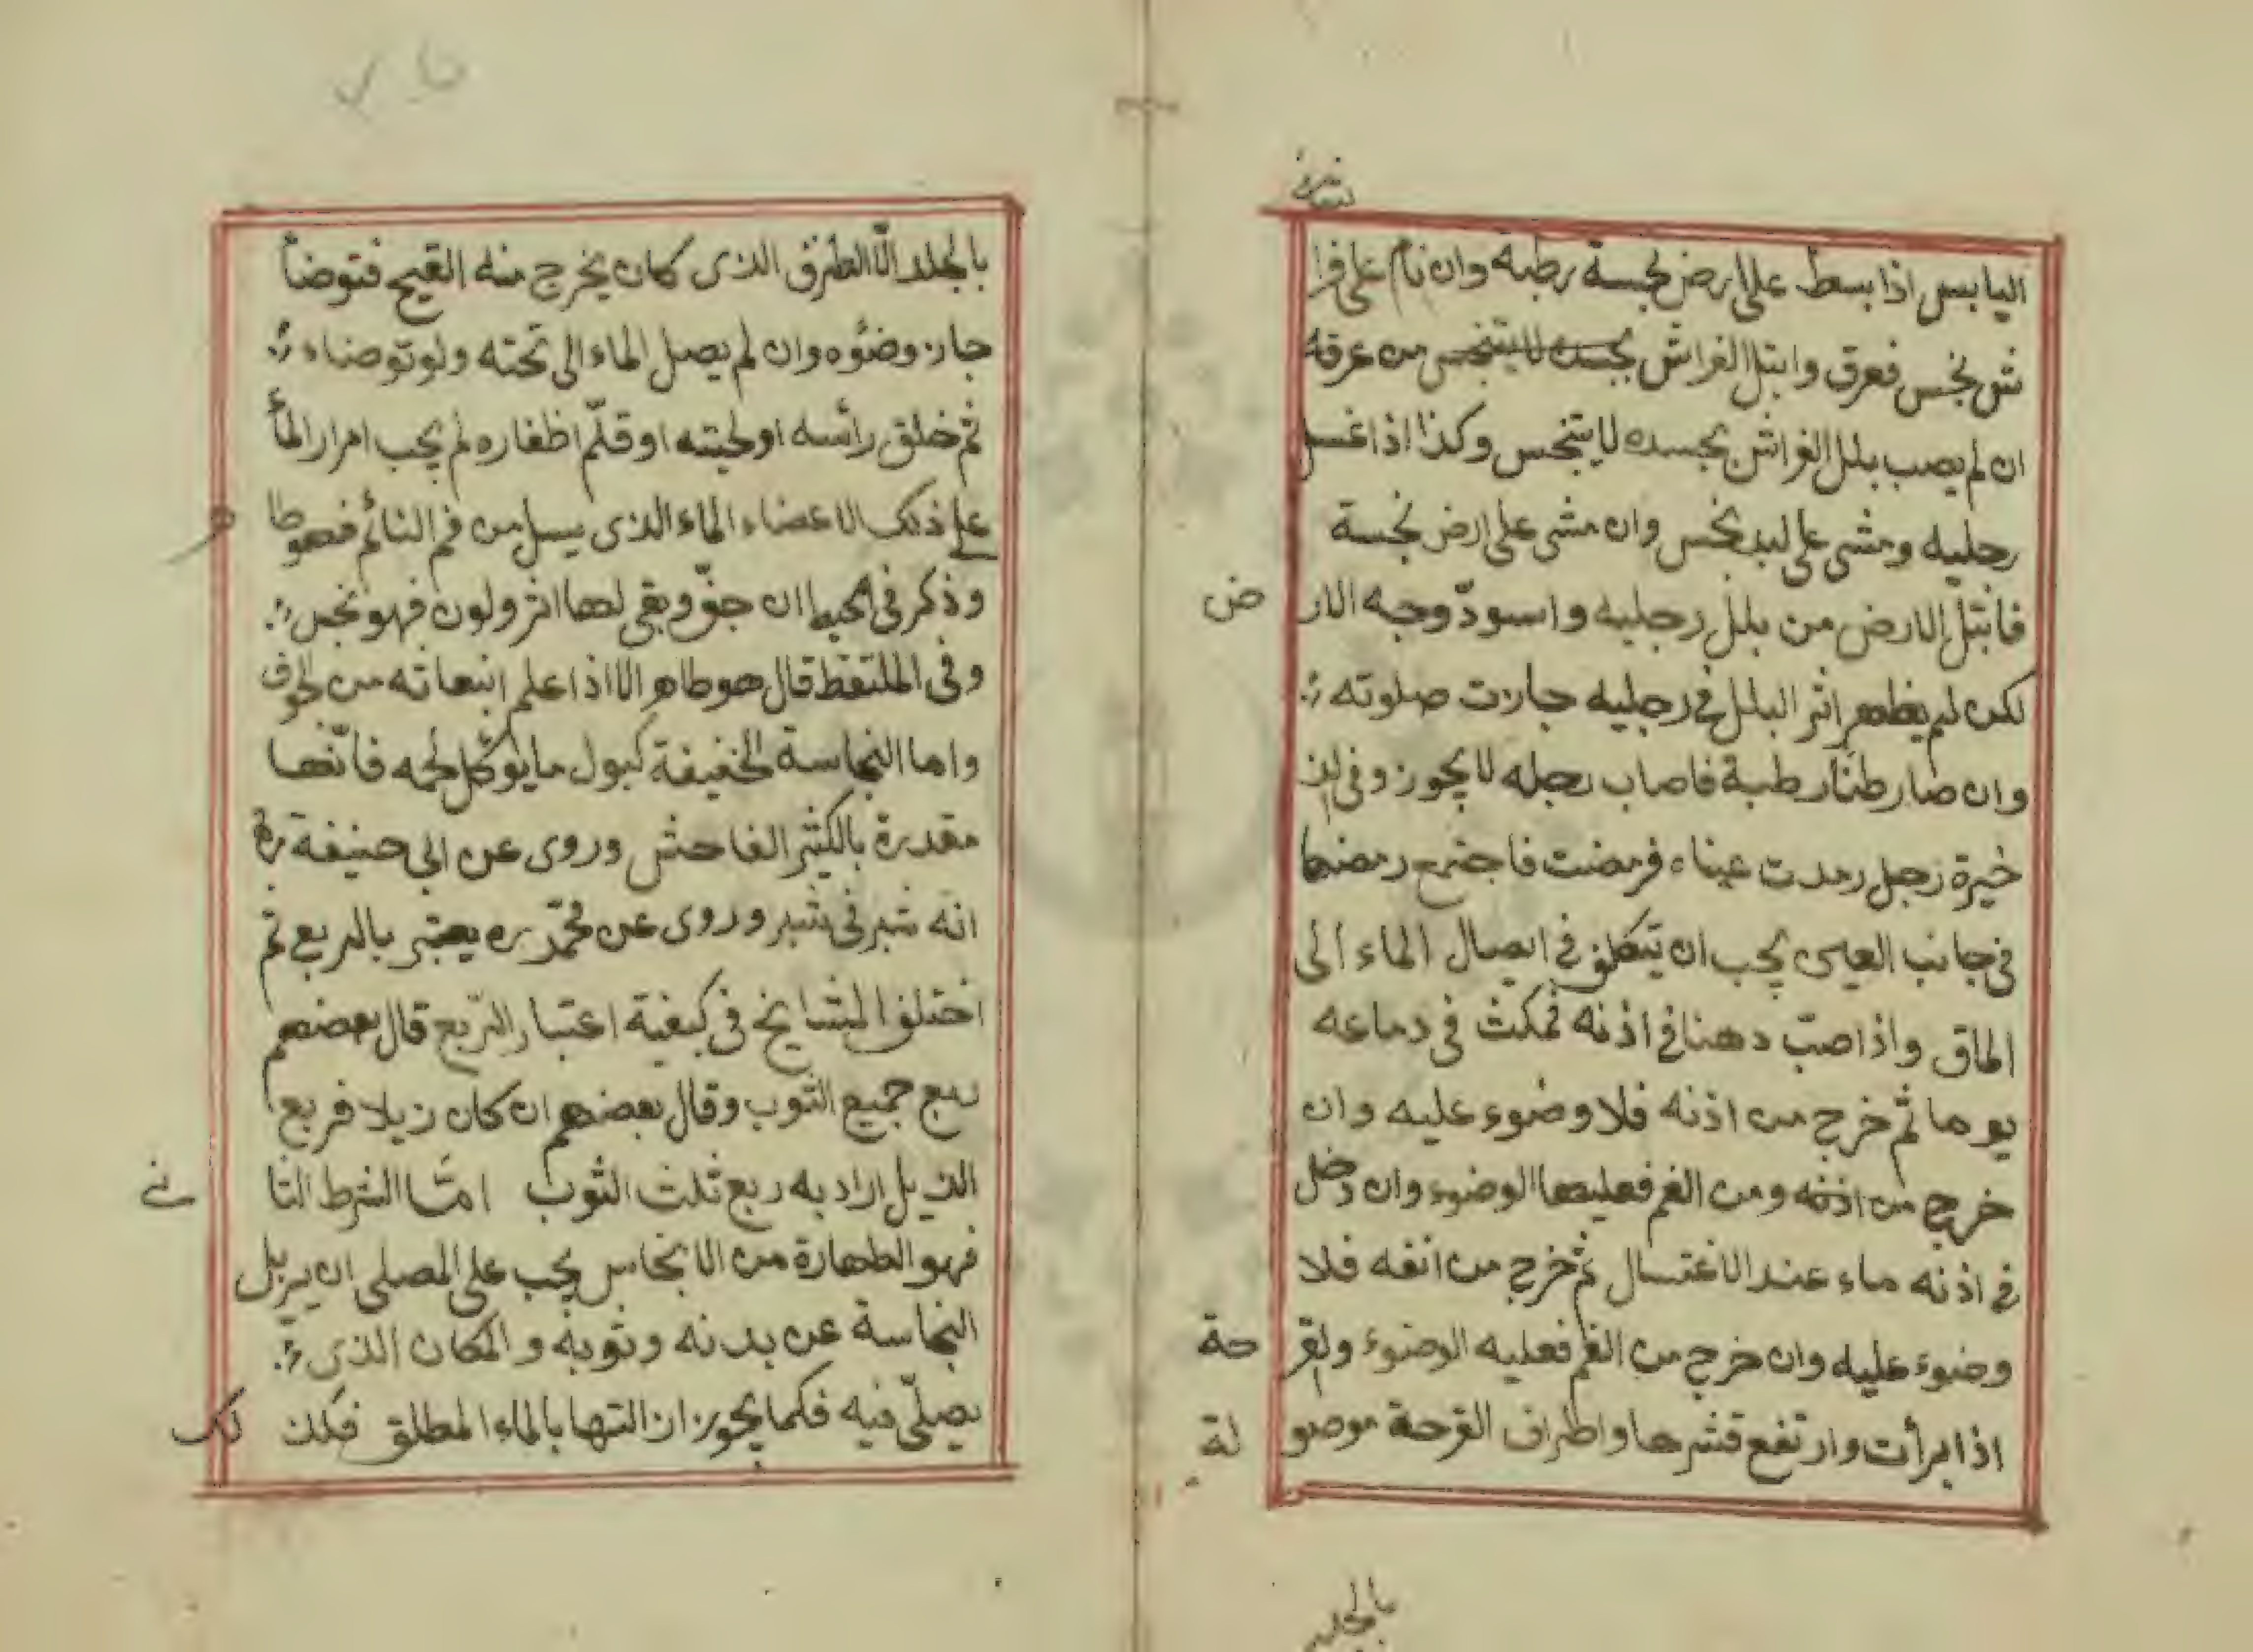 اليابس اذا بسط على ارض نجسة رطبة وان نام على فرا
ش نجس فعرق وابتل الفراش بجسده لا يتنجس من عرقه
ان لم يصب بلل الفراش بجسده لا يتنجس وكذا اذا غسل
رجليه ومشى على لبد نجس وان مشى على ارض نجسة
فابتل الارض من بلل رجليه واسودّ وجه الار ض
لكن لم يظهر اثر البلل فى رجليه جازت صلوته
وان صار طنا رطبة فاصاب رجله لا يجوز وفى الذ
خيرة رجل رمدت عيناه فرمضت فاجتمع رمضها
فى جانب العين يجب ان يتكلف فى ايصال الماء الى
الماق واذا صبّ دهنا فى اذنه فمكث فى دماغه
يوما ثم خرج من اذنه فلا وضوء عليه وان
خرج من اذنه ومن الفم فعليها الوضوء وان دخل
فى اذنه ماء عند الاغتسال ثم خرج من انفه فلا
وضوء عليه وان خرج من الفم فعليه الوضوء ولقر حة
اذا برأت وارتفع قشرها واطراف القرحة موصو لة
بالجلد
بالجلد الّا الطرف الذى كان يخرج منه القيح فتوضأ
جاز وضؤه وان لم يصل الماء الى تحته ولو توضاء
ثم خلق رأسه او لحيته او قلّم اظفاره لم يجب امرار المأ
على ذلك الاعضاء الماء الذى يسيل من فم النائم فهو طا ه
وذكر فى المحيط ان جفّ وبقى لها اثر ولون فهو نجس
وفى الملتقط قال هو طاهر الا اذا علم انبعاثه من الجوف
واما النجاسة الخفيفة كبول ما يؤكل لحمه فانّها
مقدرة بالكثير الفاحش وروى عن ابى حنيفة ره
انه شبر فى شبر وروى عن محمّد ره يعتبر بالربع ثم
اختلف المشايخ فى كيفية اعتبار الرّبع قال بعضهم
ربع جميع الثوب وقال بعضهم ان كان زيلا فربع
الذيل اراد به ربع ثلث الثوب امّا الشرط الثا نى
فهو الطهارة من الانجاس يجب على المصلى ان يزيل
النجاسة عن بدنه وثوبه والمكان الذى
يصلّى فيه فكما يجوز ازالتها بالماء المطلق فكذ لك